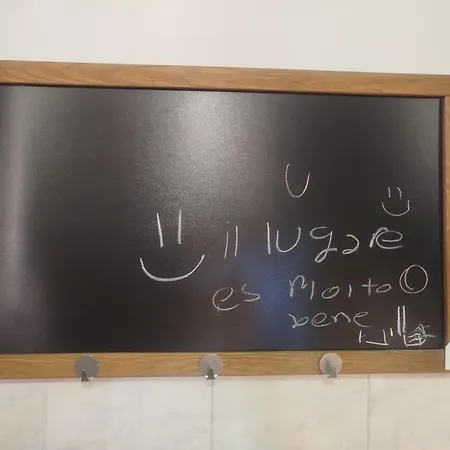 il lugare
es molto
bene